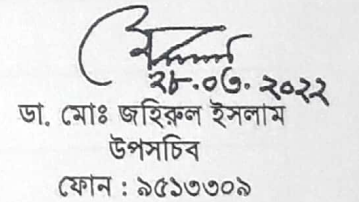 ২৮.০৩.২০২২
ডা. মোঃ জহিরুল ইসলাম
উপসচিব
ফোন : ৯৫১৩৩০৯